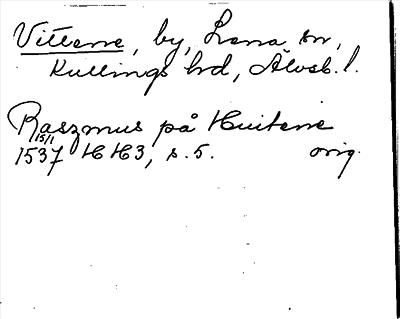 Vittene, by, Lena sn,
Kullings hd, Älvsb. l.
Raszmus på Huitene
15/1
1537 HH3, s. 5. orig.